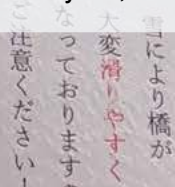 雪により橋が
大変滑りやすく
なっております
ご注意ください！